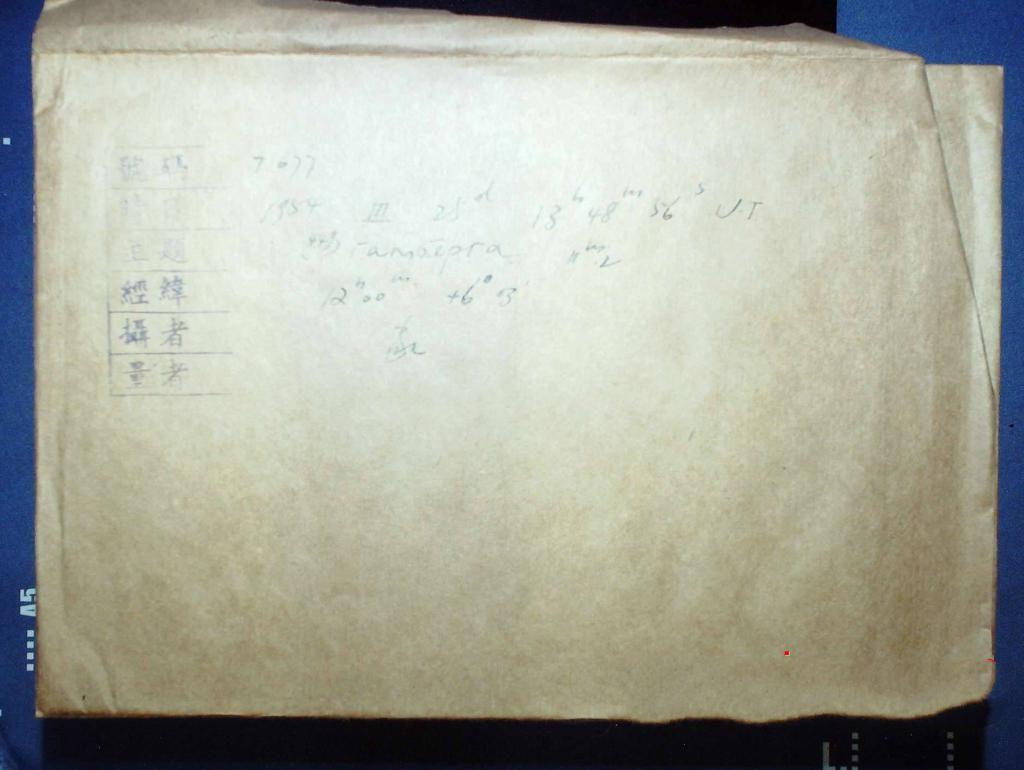 號碼 7077
1954 III 25d 13h 48m 56s U.T
主題 993 Tamariwa 11m2
經緯 12h00m +6°3'
攝者
量者
A5